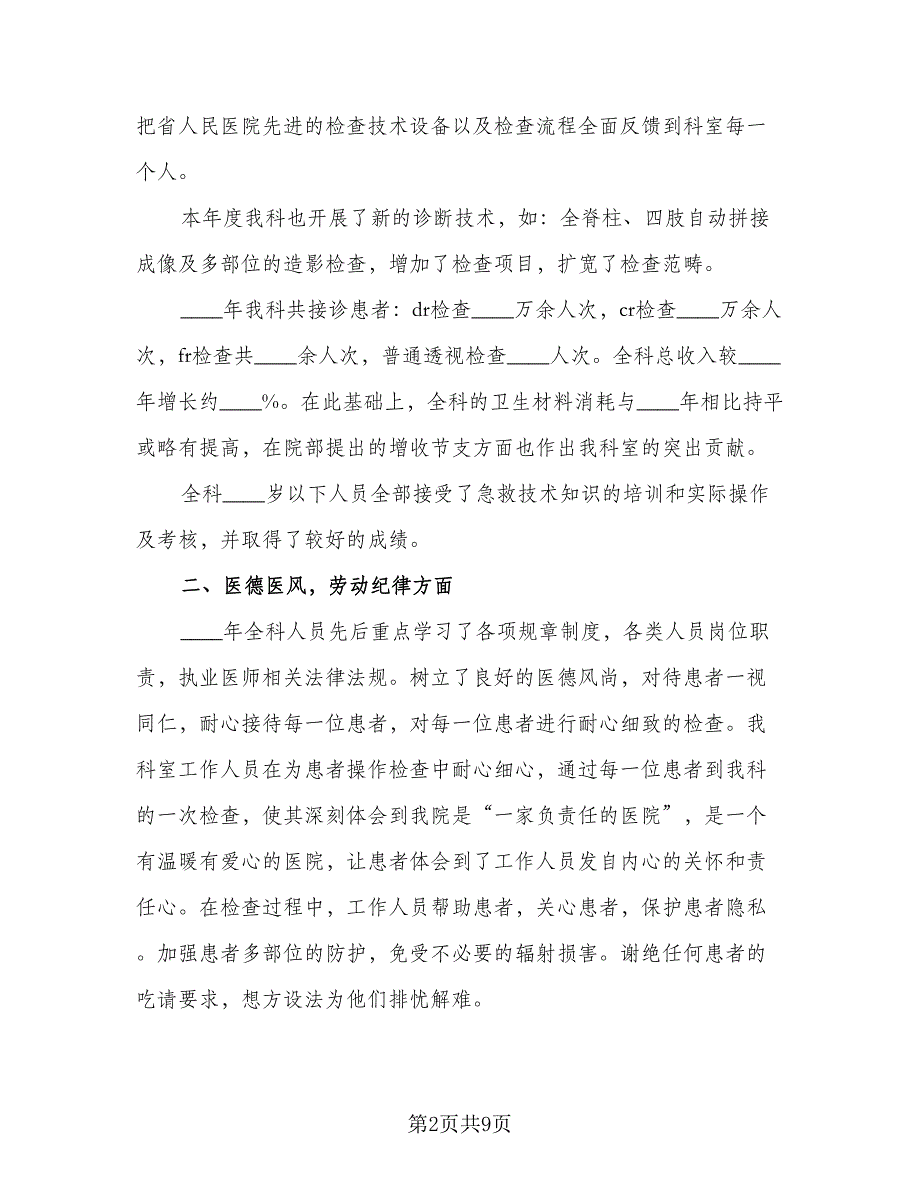 把省人民医院先进的检查技术设备以及检查流程全面反馈到科室每一
个人。
本年度我科也开展了新的诊断技术，如：全脊柱、四肢自动拼接
成像及多部位的造影检查，增加了检查项目，扩宽了检查范畴。
____年我科共接诊患者：dr检查____万余人次，cr检查____万余人
次，fr检查共____余人次，普通透视检查____人次。全科总收入较____
年增长约____%。在此基础上，全科的卫生材料消耗与____年相比持平
或略有提高，在院部提出的增收节支方面也作出我科室的突出贡献。
全科____岁以下人员全部接受了急救技术知识的培训和实际操作
及考核，并取得了较好的成绩。
二、医德医风，劳动纪律方面
____年全科人员先后重点学习了各项规章制度，各类人员岗位职
责，执业医师相关法律法规。树立了良好的医德风尚，对待患者一视
同仁，耐心接待每一位患者，对每一位患者进行耐心细致的检查。我
科室工作人员在为患者操作检查中耐心细心，通过每一位患者到我科
的一次检查，使其深刻体会到我院是“一家负责任的医院”，是一个
有温暖有爱心的医院，让患者体会到了工作人员发自内心的关怀和责
任心。在检查过程中，工作人员帮助患者，关心患者，保护患者隐私
。加强患者多部位的防护，免受不必要的辐射损害。谢绝任何患者的
吃请要求，想方设法为他们排忧解难。
第2页共9页